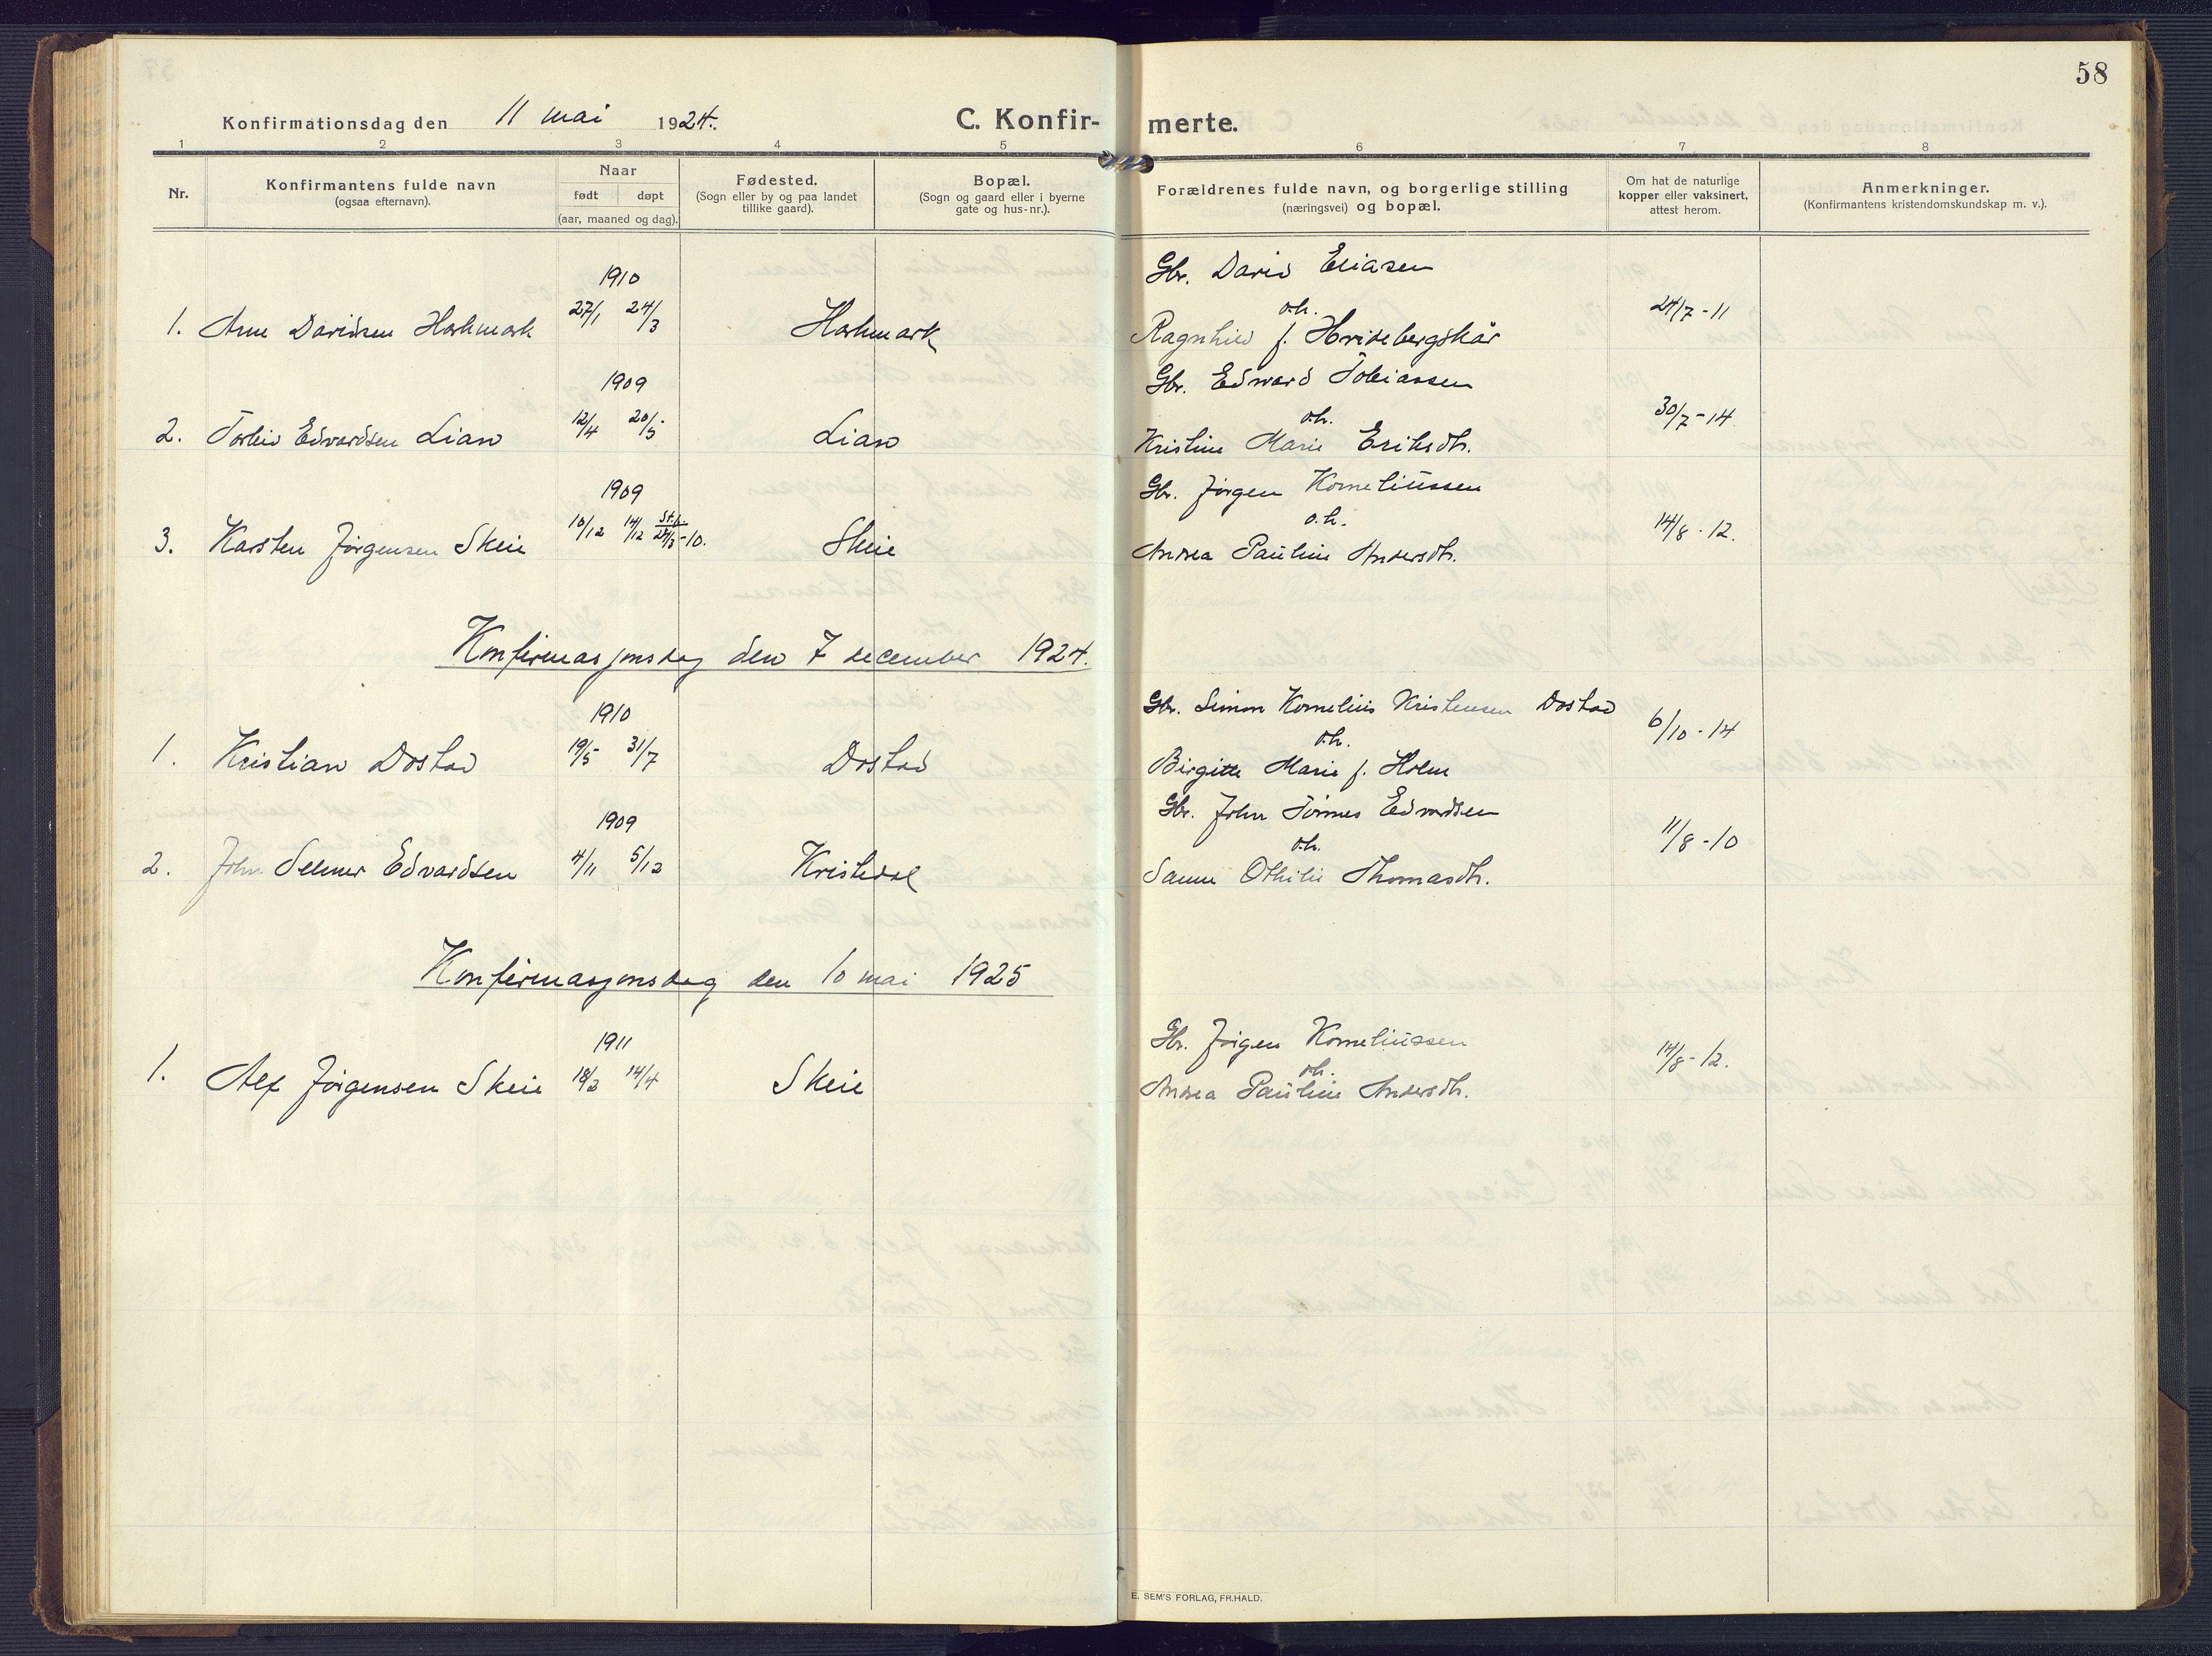 58
Konfirmationsdag den 11 mai 1924.
C. Konfirmerte.
1 2 3 4 5 6 7 8
Nr.
Konfirmantens fulde navn
(ogsaa efternavn).
Naar
født døpt
(aar, maaned og dag).
Fødested.
(Sogn eller by og paa landet
tillike gaard).
Bopæl.
(Sogn og gaard eller i byerne
gate og hus-nr.).
Forældrenes fulde navn, og borgerlige stilling
(næringsvei) og bopæl.
Om hat de naturlige
kopper eller vaksinert,
attest herom.
Anmerkninger.
(Konfirmantens kristendomskundskap m. v.).
1910 Gbr. David Eliasen
o.h.
1. Arne Davidsen Harkmark 27/1 24/3 Harkmark Ragnhild f. Hvidebergskår 24/7-11
1909 Gbr. Edward Tobiassen
o.h.
2. Torleiv Edvardsen Lian 12/4 20/5 Lian Kristine Marie Eriksdtr. 30/7-14
1909 Gbr. Jørgen Korneliussen
o.h.
3. Karsten Jørgensen Skeie 10/12 14/12 st.b. 27/3-10. Skeie Andrea Pauline Andersdtr. 14/8-12.
Konfirmasjonsdag den 7 december 1924.
1910 Gbr. Simon Kornelius Kristensen Dostad
o.h.
1. Kristian Dostad 19/5 31/7 Dostad Birgitte Marie f. Holm 6/10-14
1909 Gbr. John Tørnes Edvardsen
o.h.
2. John Selmer Edvardsen 4/11 5/12 Kristedal Sanne Othilie Thomasdtr. 11/8-10
Konfirmasjonsdag den 10 mai 1925
1911 Gbr. Jørgen Korneliussen
o.h.
1. Alf Jørgensen Skeie 18/2 14/4 Skeie Andrea Pauline Andersdtr. 14/8-12.
E. SEM'S FORLAG, FR.HALD.